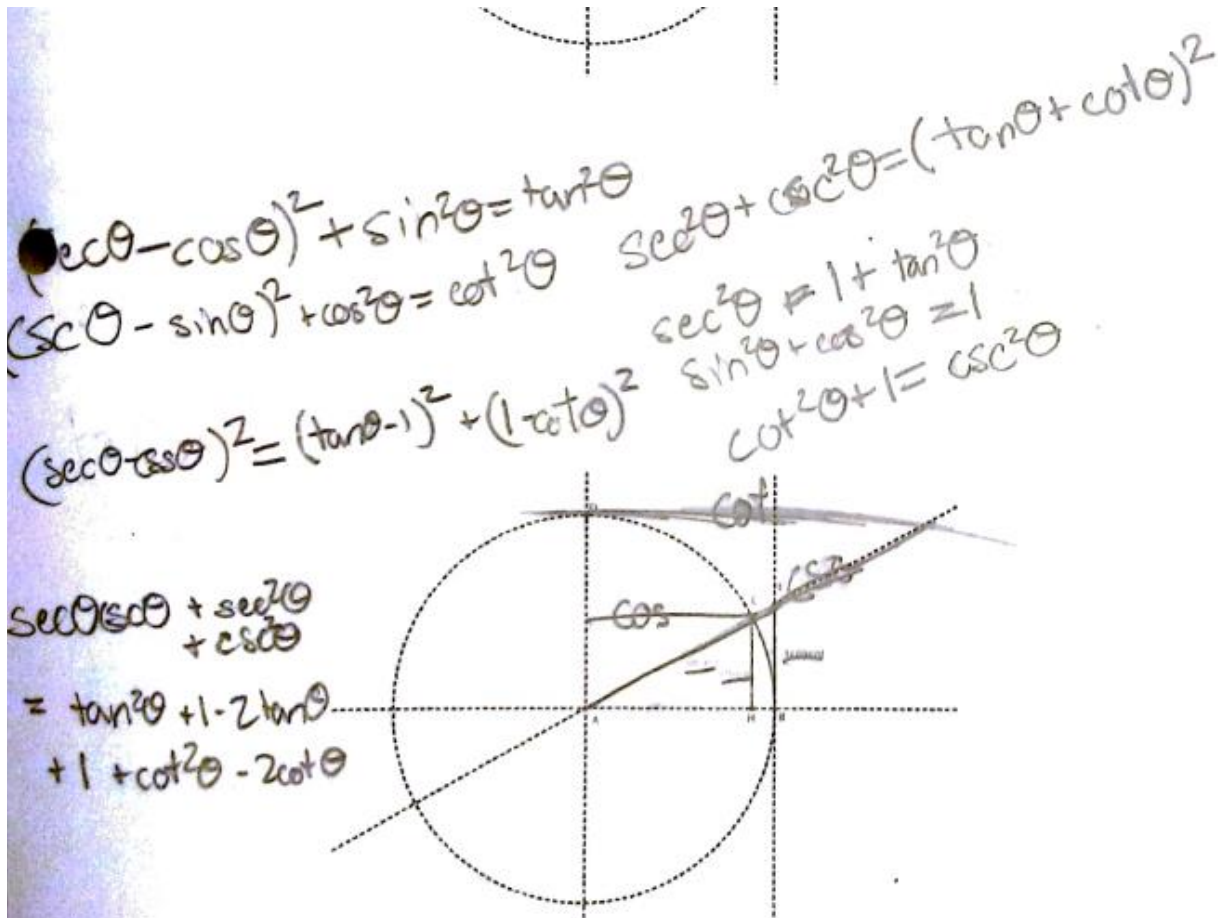 (secθ-cosθ)²+sin²θ=tan²θ
(cscθ-sinθ)²+cos²θ=cot²θ
sec²θ+csc²θ=(tanθ+cotθ)²
sec²θ=1+tan²θ
sin²θ+cos²θ=1
cot²θ+1=csc²θ
(secθ-cscθ)²=(tanθ-1)²+(1-cotθ)²
secθcscθ+sec²θ
+csc²θ
=tan²θ+1-2tanθ
+1+cot²θ-2cotθ
cot
csc
cos
A
H
B